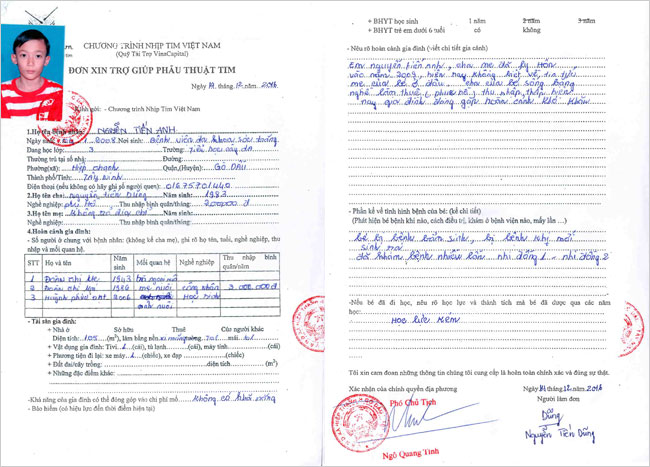 CHƯƠNG TRÌNH NHỊP TIM VIỆT NAM
(Quỹ Tài Trợ VinaCapital)
ĐƠN XIN TRỢ GIÚP PHẪU THUẬT TIM
Ngày 12 .năm 2016
Kính gửi: - Chương trình Nhịp Tim Việt Nam
NGUYỄN TIẾN ANH
Ngày sinh: 1 2008 Nơi sinh: Bệnh viện đa khoa
Đang học lớp: 3 Trường: Tiểu học
Thường trú tại số nhà: Đường:
Phường(xã): Hiệp thạnh Quận,(Huyện): Gò Dầu
Thành phố/Tỉnh: Tây Ninh
Điện thoại (nếu không có hãy ghi số người quen): 01675701440
2.Họ tên cha: nguyễn tiến Dũng Năm sinh: 1983
Nghề nghiệp: phụ hồ Thu nhập bình quân/tháng:
3.Họ tên mẹ: không Năm sinh:
4.Hoàn cảnh gia đình:
- Số người ở chung với bệnh nhân: (không kể cha mẹ), ghi rõ họ tên, tuổi, nghề nghiệp, thu nhập và mối quan hệ.
STT Họ và tên Năm sinh Mối quan hệ Nghề nghiệp Thu nhập bình quân/năm
1 ĐOÀN THỊ 1943 bà ngoại
2 ĐOÀN THỊ 1986 mẹ nuôi công nhân 3.000.000đ
3 Huỳnh 2006 Học sinh
- Tài sản gia đình:
+ Nhà ở Sở hữu Thuê Của người khác
Diện tích: 105 (m²), làm bằng nền xi măng tường mái
+ Vật dụng gia đình: Tivi (cái), tủ lạnh, (cái), máy tính. (cái)
+ Phương tiện đi lại: xe máy 1 (chiếc), xe đạp (chiếc)
+ Đất đai/cây trồng: diện tích (m²)
+ Những đặc điểm khác:
-Khả năng của gia đình có thể đóng góp vào chi phí mổ không có khả năng
- Bảo hiểm (có hiệu lực đến thời điểm hiện tại)
+ BHYT học sinh 1 năm 2 năm 3 năm
+ BHYT trẻ em dưới 6 tuổi có không
- Nêu rõ hoàn cảnh gia đình (viết chi tiết gia cảnh)
Em nguyễn tiến anh, cha mẹ đã ly Hôn
vào năm 2009, hiện nay không biết về tin tức
mẹ của bé ở đâu. cha của bé sống bằng
nghề làm thuê (phụ hồ), thu nhập thấp hiện
nay gia đình đang gặp hoàn cảnh khó khăn
- Phần kể về tình hình bệnh của bé: (kể chi tiết)
(Phát hiện bệnh khi nào, cách điều trị, khám ở bệnh viện nào, mấy lần ...)
bé bị bệnh bẩm sinh, bị bệnh khi mới
sinh ra
đã khám bệnh nhiều lần nhi đồng 1 - nhi đồng 2
-Nếu bé đã đi học, nêu rõ học lực và thành tích mà bé đã được qua các năm học:
Học lực kém
Tôi xin cam đoan những thông tin chúng tôi cung cấp là hoàn toàn chính xác và đúng sự thật.
Ngày 12 năm 2016
Xác nhận của chính quyền địa phương Người làm đơn
Phó Chủ Tịch
Dũng
Nguyễn Tiến Dũng
Ngô Quang Tình